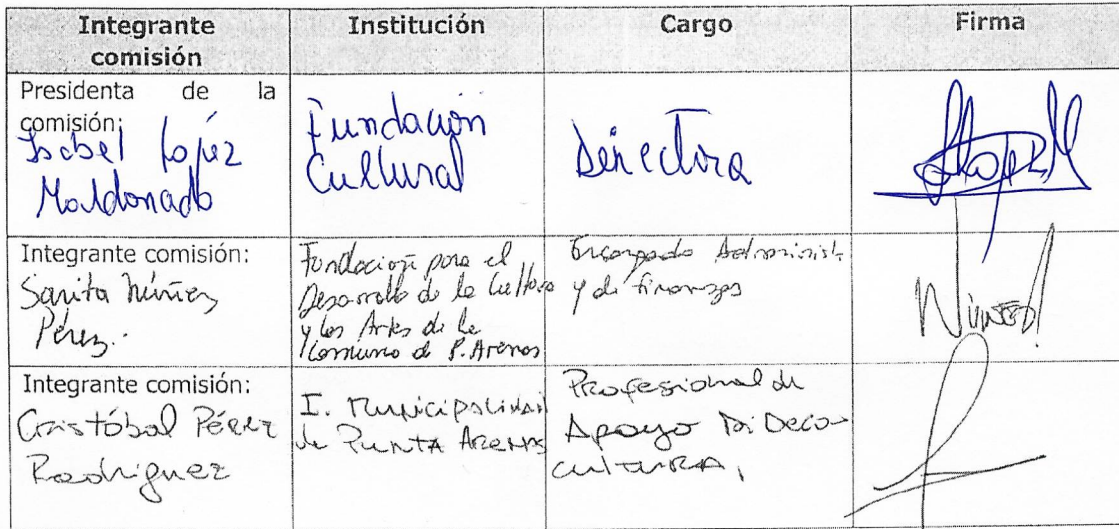 Integrante comisión
Institución
Cargo
Firma
Presidenta de la comisión:
Isabel López
Maldonado
Fundación
Cultural
Directora
Integrante comisión:
Sarita Núñez
Pérez.
Fundación para el
Desarrollo de la Cultura
y las Artes de la
Comuna de P. Arenas
Encargada Administ.
y de finanzas
Integrante comisión:
Cristóbal Pérez
Rodríguez
I. Municipalidad
de Punta Arenas
Profesional de
Apoyo Dideco-
cultura,